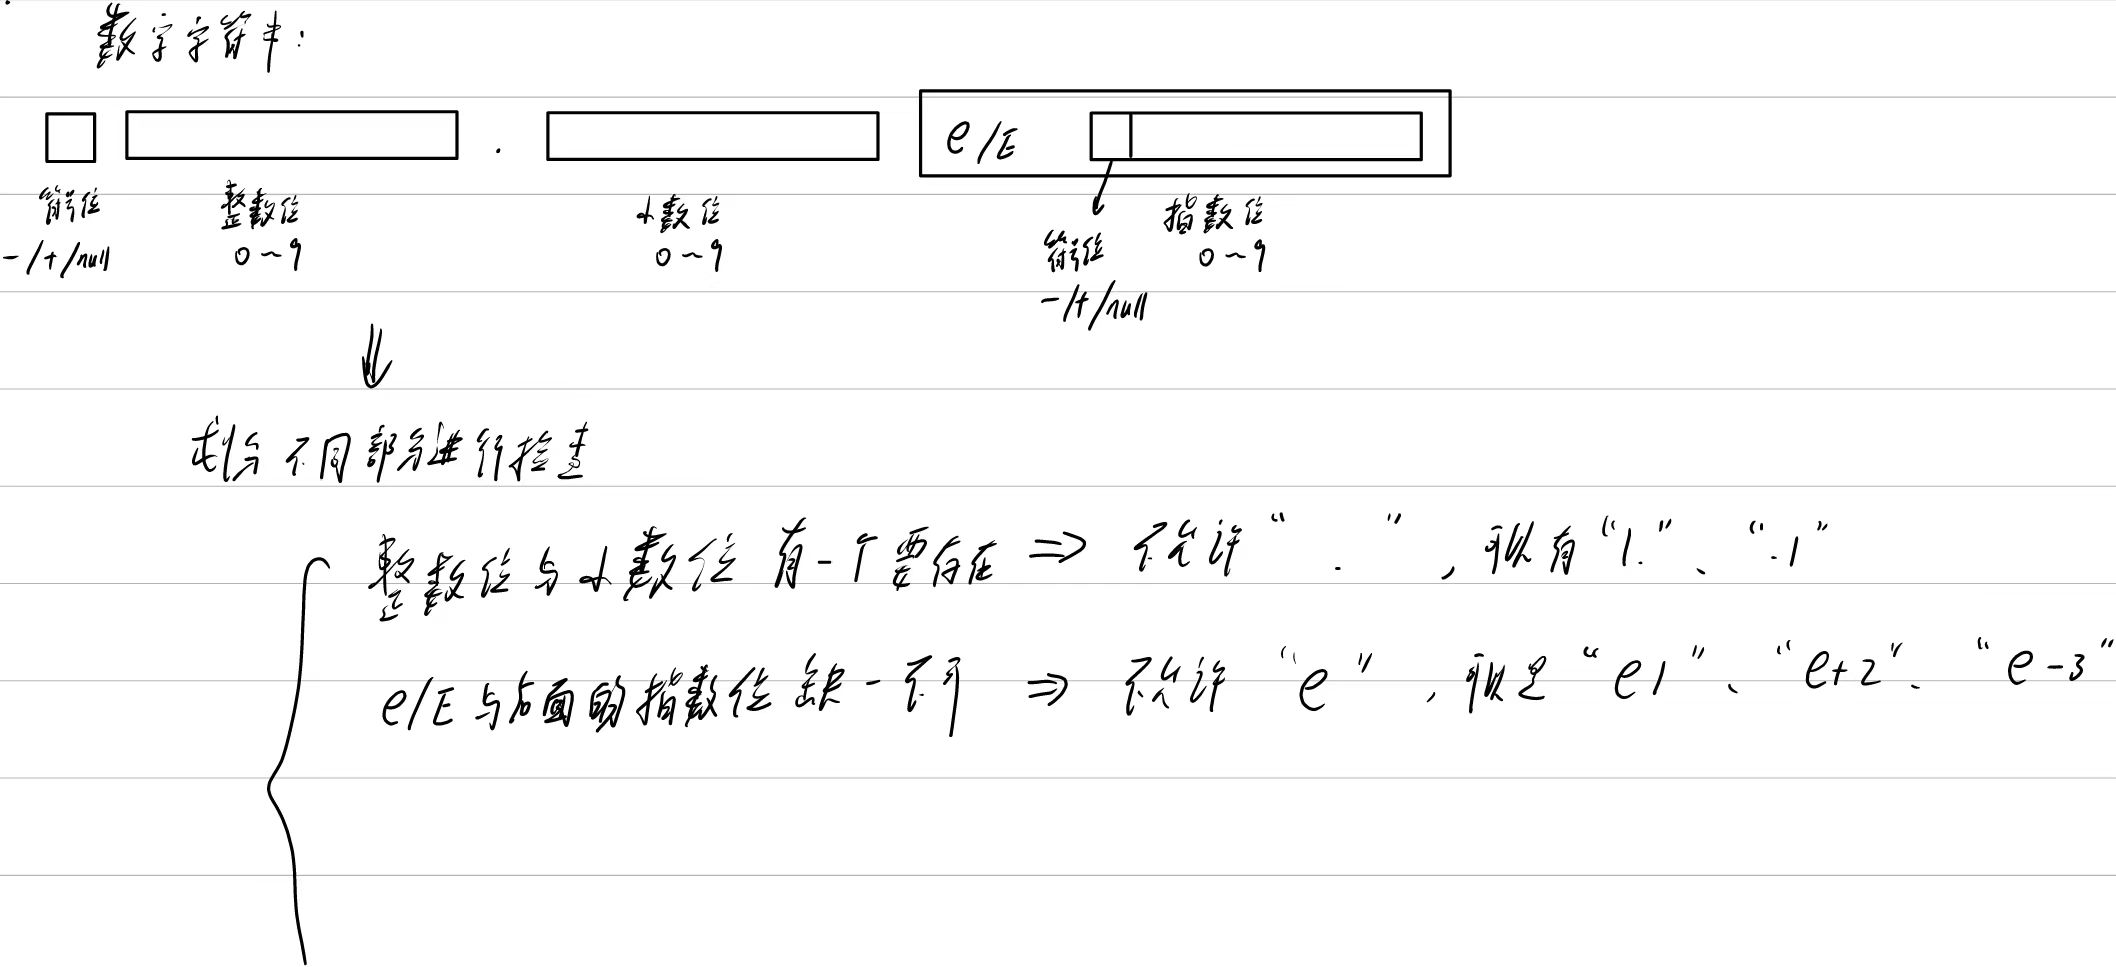 数字字符串:
. e/E
符号位 整数位 小数位 指数位
-/+/null 0~9 0~9 符号位 0~9
-/+/null
划分不同部分进行检查
整数位与小数位有一个要存在 ⇒ 不允许“ . ”，可以有“1.”、“.1”
e/E与后面的指数位缺一不可 ⇒ 不允许“e”，可以是“e1”、“e+2”、“e-3”